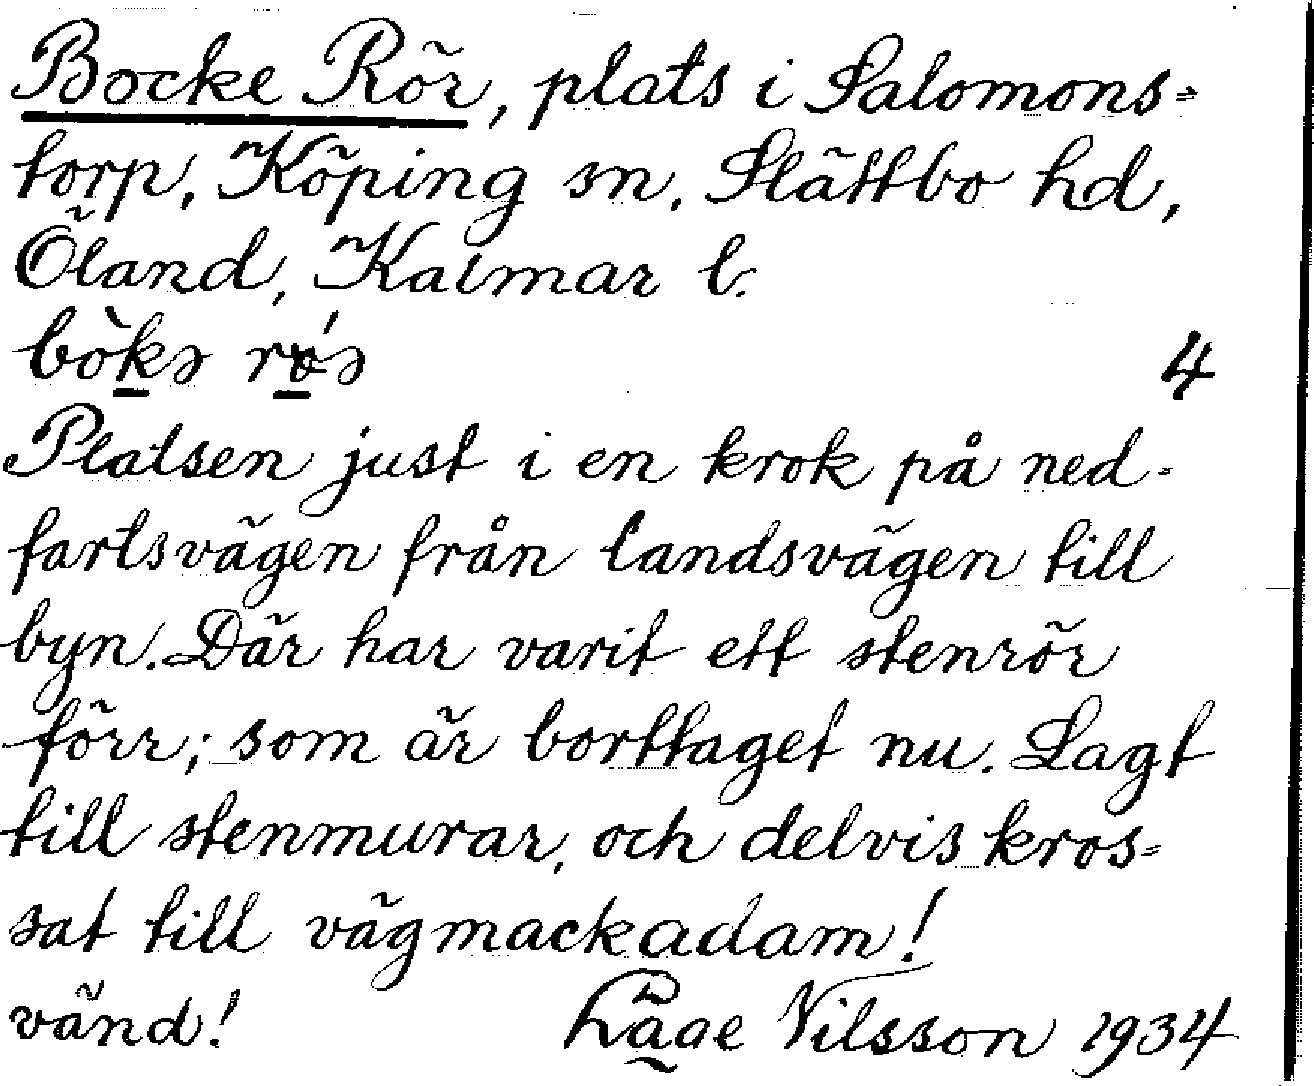 Bocke Rör, plats i Salomons-
torp, Köping sn, Slättbo hd,
Öland, Kalmar l.
4
Platsen just i en krok på ned-
fartsvägen från landsvägen till
byn. Där har varit ett stenrör
förr; som är borttaget nu. Lagt
till stenmurar, och delvis kros-
sat till vägmackadam!
vänd! Nilsson 1934